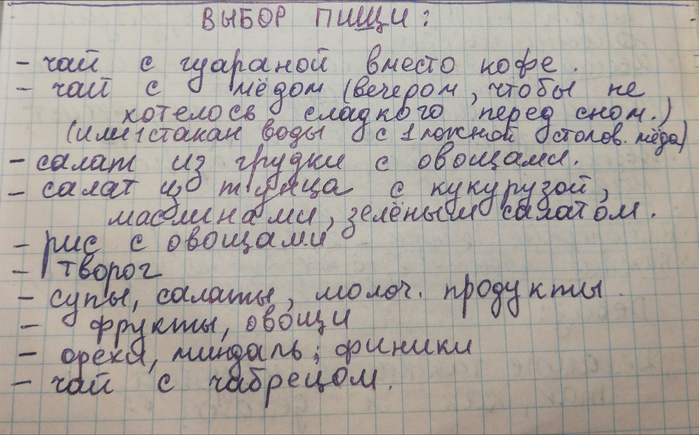 ВЫБОР ПИЩИ:
- чай с гуараной вместо кофе.
- чай с мёдом (вечером, чтобы не
хотелось сладкого перед сном.)
(или 1 стакан воды с 1 ложкой столов. мёда)
- салат из грудки с овощами.
- салат из тунца с кукурузой,
маслинами, зелёным салатом.
- рис с овощами
- творог
- супы, салаты, молоч. продукты.
- фрукты, овощи
- орехи, миндаль, финики
- чай с чабрецом.